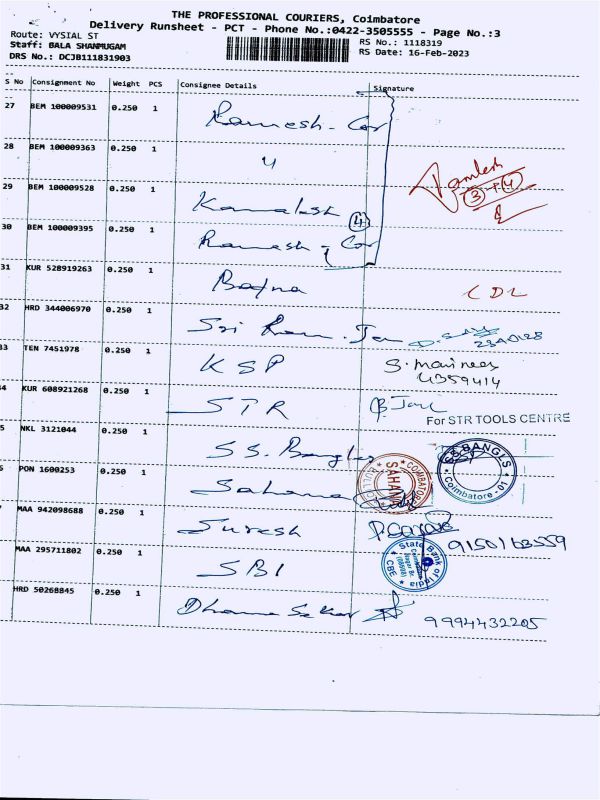 THE PROFESSIONAL COURIERS, Coimbatore
Delivery Runsheet - PCT - Phone No.:0422-3505555 - Page No.:3
Route: VYSIAL ST
RS No.: 1118319
Staff: BALA SHANMUGAM
RS Date: 16-Feb-2023
DRS No.: DCJB111831903
S No Consignment No Weight PCS Consignee Details Signature
27 BEM 100009531 0.250 1 Ramesh - Cor
28 BEM 100009363 0.250 1 4
29 BEM 100009528 0.250 1 Kamalesh
Kamlesh
3 + 4
4
30 BEM 100009395 0.250 1 Ramesh - Cor
31 KUR 528919263 0.250 1 Bafna CDL
32 HRD 344006970 0.250 1 Sri Ram. Jan
33 TEN 7451978 0.250 1 KSP
4359414
4 KUR 608921268 0.250 1 STR
For STR TOOLS CENTRE
5 NKL 3121044 0.250 1 S S. Bangles
S.S.BANGLS Coimbatore - 01
6 PON 1600253 0.250 1 Sahana
SAHANA COIMBATORE
MAA 942098688 0.250 1 Suresh
9150163559
MAA 295711802 0.250 1 SBI
State Bank of India CBE
HRD 50268845 0.250 1 Dhana Sekar 9994432205